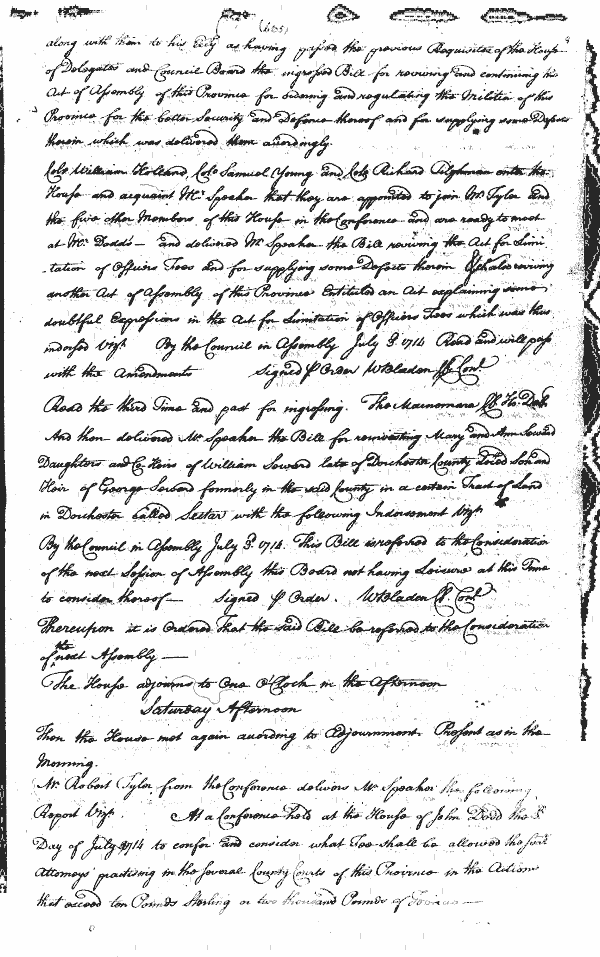 (685)
along with them to his Excy as having passed the previous Requisites of the House
of Delegates and Council Board the ingrossed Bill for reviving and continuing his
Act of Assembly of this Province for ordering and regulating the Militia of this
Province for the better Security and Defence thereof and for supplying some Defects
therein which was delivered them accordingly.
Colo William Holland, Colo Samuel Young and Colo Richard Tilghman enter the
House and acquaint Mr Speaker that they are appointed to join Mr Tyler and
the five other Members of this House in the Conference and are ready to meet
at Mr Dodds — and delivered Mr Speaker the Bill reviving the Act for Limi
tation of Officers Fees and for supplying some Defects therein & also reviving
another Act of Assembly of this Province Entituled an Act explaining some
doubtful Expressions in the Act for Limitation of Officers Fees which was thus
indorsed Vizt By the Council in Assembly July 3d 1714 Read and will pass
with the Amendments Signed p Order WBladen Cl Conl
Read the third Time and past for ingrossing. Cl Ho. Del.
And then delivered Mr Speaker the Bill for reinvesting Mary and Ann Seward
Daughters and Co Heirs of William Seward late of Dorchester County Son and
Heir of George Seward formerly in the said County in a certain Tract of Land
in Dorchester called Sector with the following Indorsement Vizt
By the Council in Assembly July 3d 1714. This Bill is referred to the Consideration
of the next Session of Assembly this Board not having Leisure at this Time
to consider thereof — Signed p Order. WBladen Cl. Conl
Thereupon it is Ordered That the said Bill be referred to the Consideration
of the next Assembly —
The House adjourns to One O Clock in the Afternoon
Saturday Afternoon
Then the House met again according to Adjournment. Present as in the
Morning.
Mr Robert Tyler from the Conference delivers Mr Speaker the following
Report Vizt At a Conference held at the House of John Dodd the 3d
Day of July 1714 to confer and consider what Fee shall be allowed the
Attorneys practising in the several County Courts of this Province in the Actions
that exceed ten Pounds Sterling or two thousand Pounds of Tobacco —